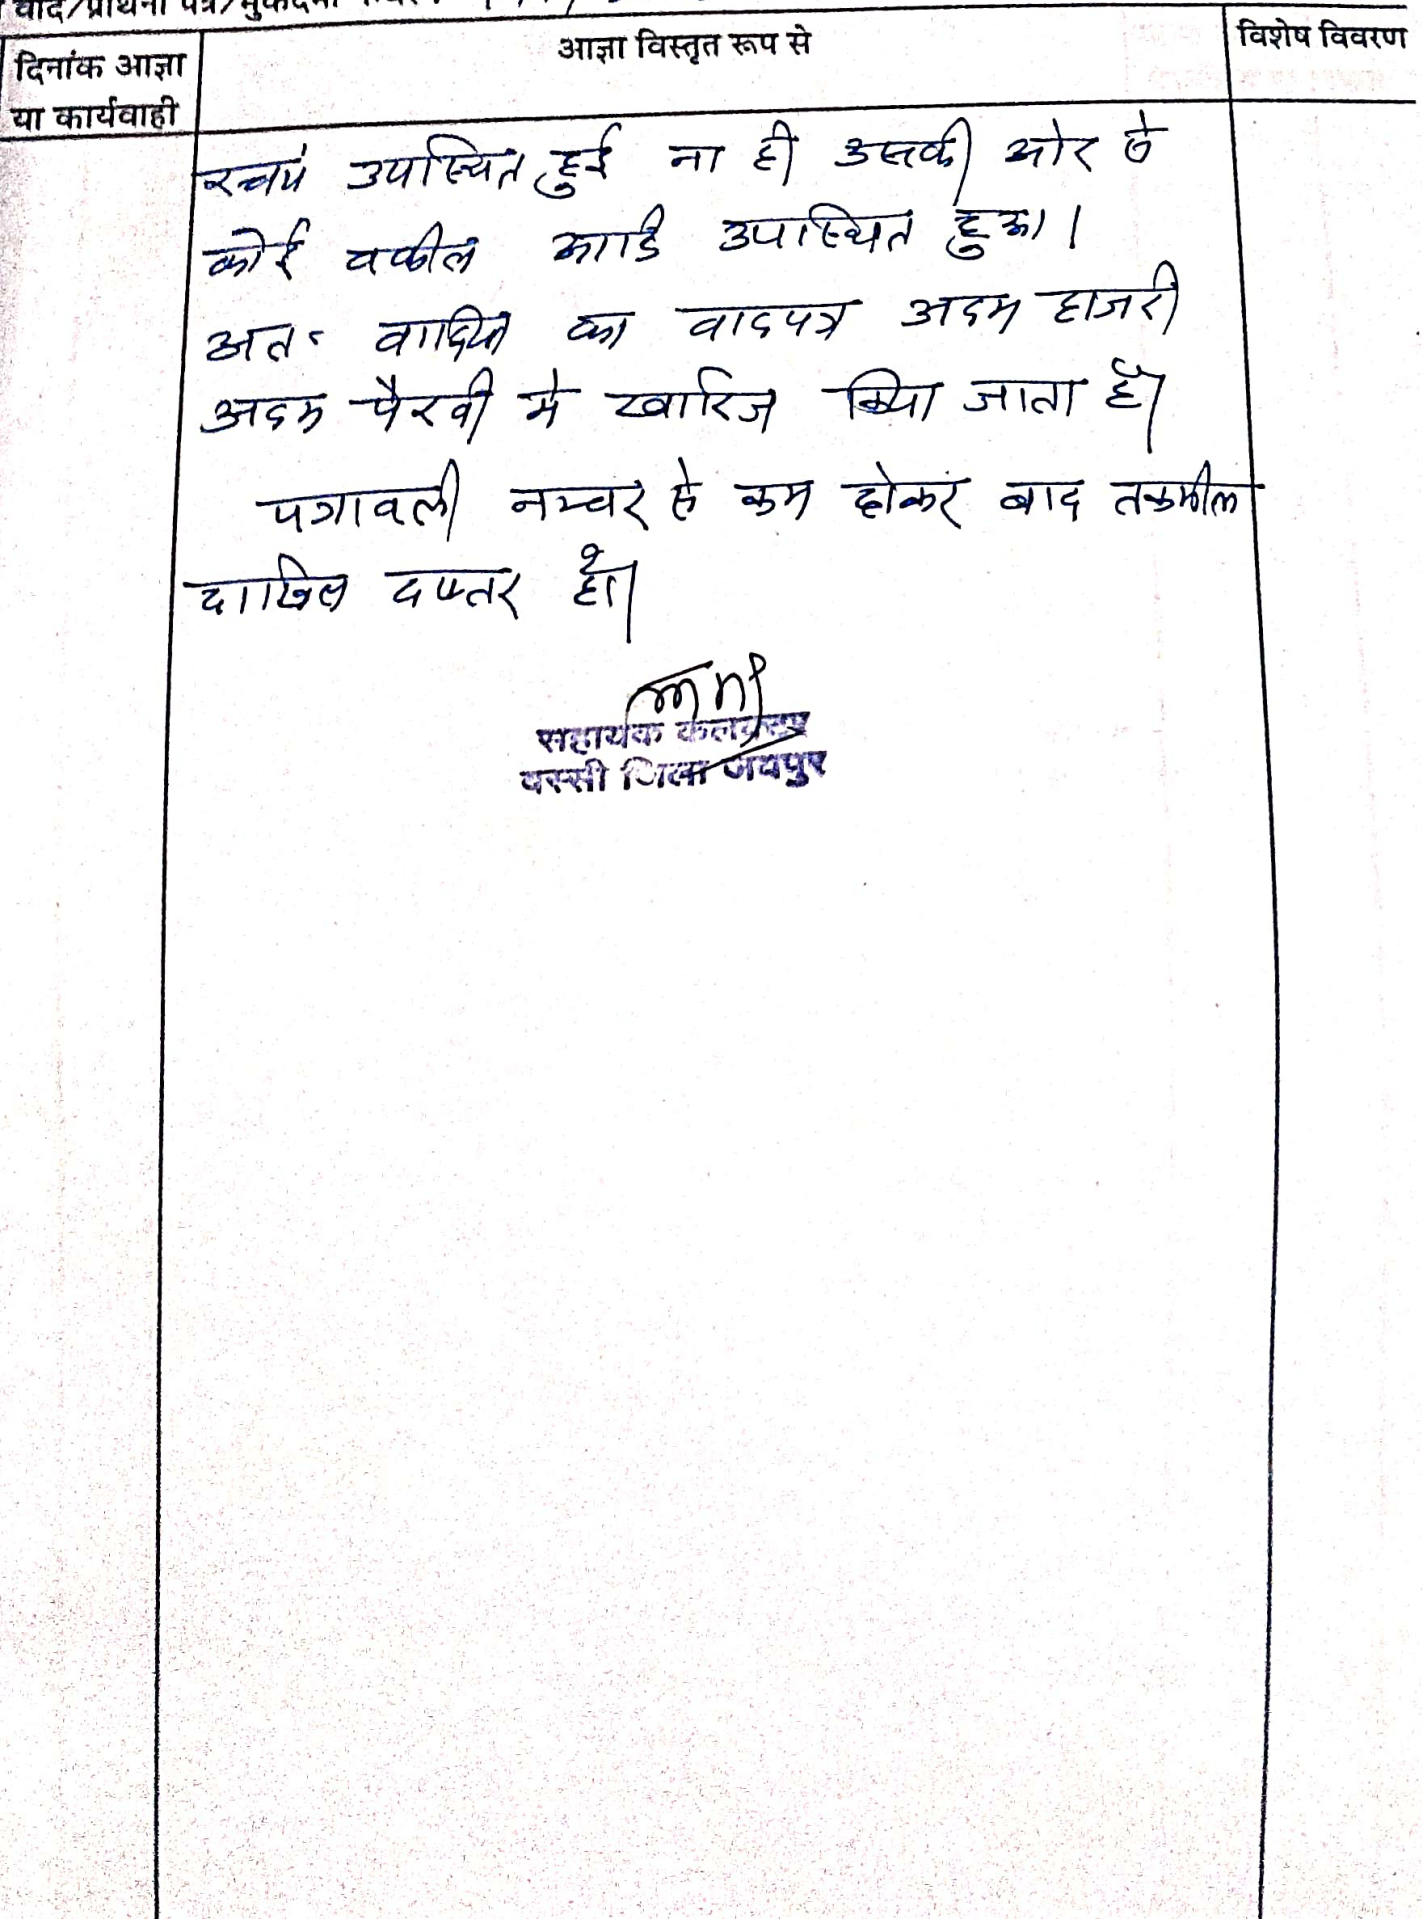 वाद/प्रार्थना पत्र/मुकदमा
दिनांक आज्ञा
या कार्यवाही
आज्ञा विस्तृत रूप से
विशेष विवरण
स्वयं उपस्थित हुई ना ही उसकी ओर से
कोई वकील आदि उपस्थित हुआ।
अतः वादिया का वादपत्र अदम हाजरी
अदम पैरवी मे खारिज किया जाता है।
पत्रावली नम्बर से कम होकर बाद तकमील
दाखिल दफ्तर हो।
सहायक कलक्टर
बस्सी जिला जयपुर